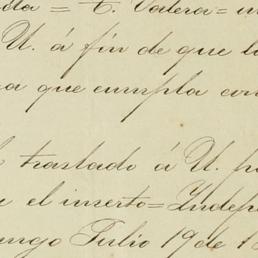 = E. Valera =
U. á fin de que l
a que cumpla con
traslado á U. p
e el inserto = Indep
ngo Julio 19 de 1